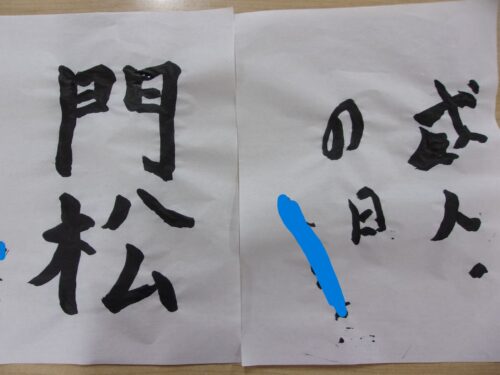 成人
の日
門松